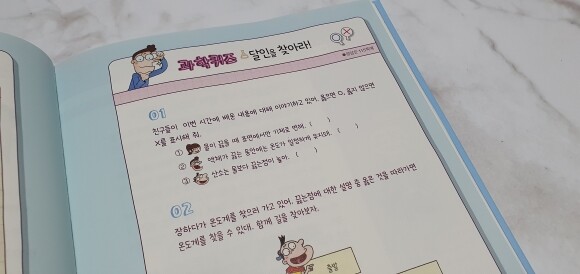 과학퀴즈 달인을 찾아라!
01
친구들이 이번 시간에 배운 내용에 대해 이야기하고 있어. 옳으면 O, 옳지 않으면
X를 표시해 줘.
① 물이 끓을 때 표면에서만 기체로 변해. ( )
② 액체가 끓는 동안에는 온도가 일정하게 유지돼. ( )
③ 산소는 물보다 끓는점이 높아. ( )
02
장하다가 온도계를 찾으러 가고 있어. 끓는점에 대한 설명 중 옳은 것을 따라가면
온도계를 찾을 수 있대. 함께 길을 찾아보자.
출발